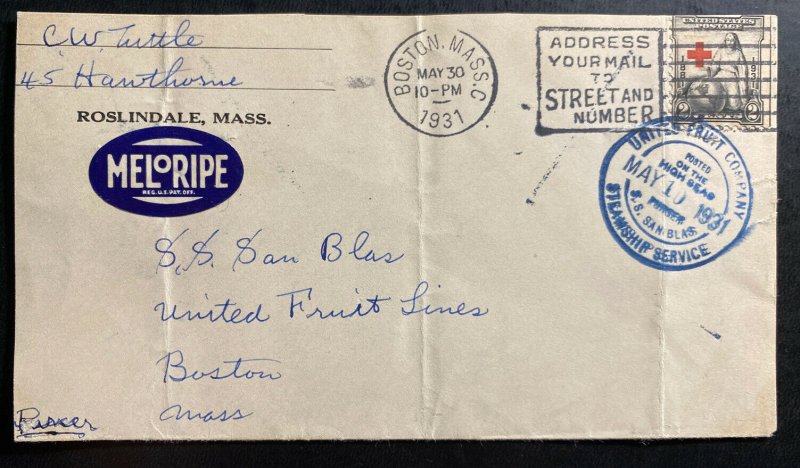 C.W. Tuttle
45 Hawthorne
ROSLINDALE, MASS.
MELORIPE
REG. U.S. PAT. OFF.
BOSTON, MASS. C
MAY 30
10-PM
1931
ADDRESS
YOUR MAIL
TO
STREET AND
NUMBER
UNITED STATES POSTAGE
1881 1931
2 2
UNITED FRUIT COMPANY
POSTED
ON THE
HIGH SEAS
MAY 10 1931
PURSER
S.S. SAN BLAS
STEAMSHIP SERVICE
S.S. San Blas
United Fruit Lines
Boston
Mass